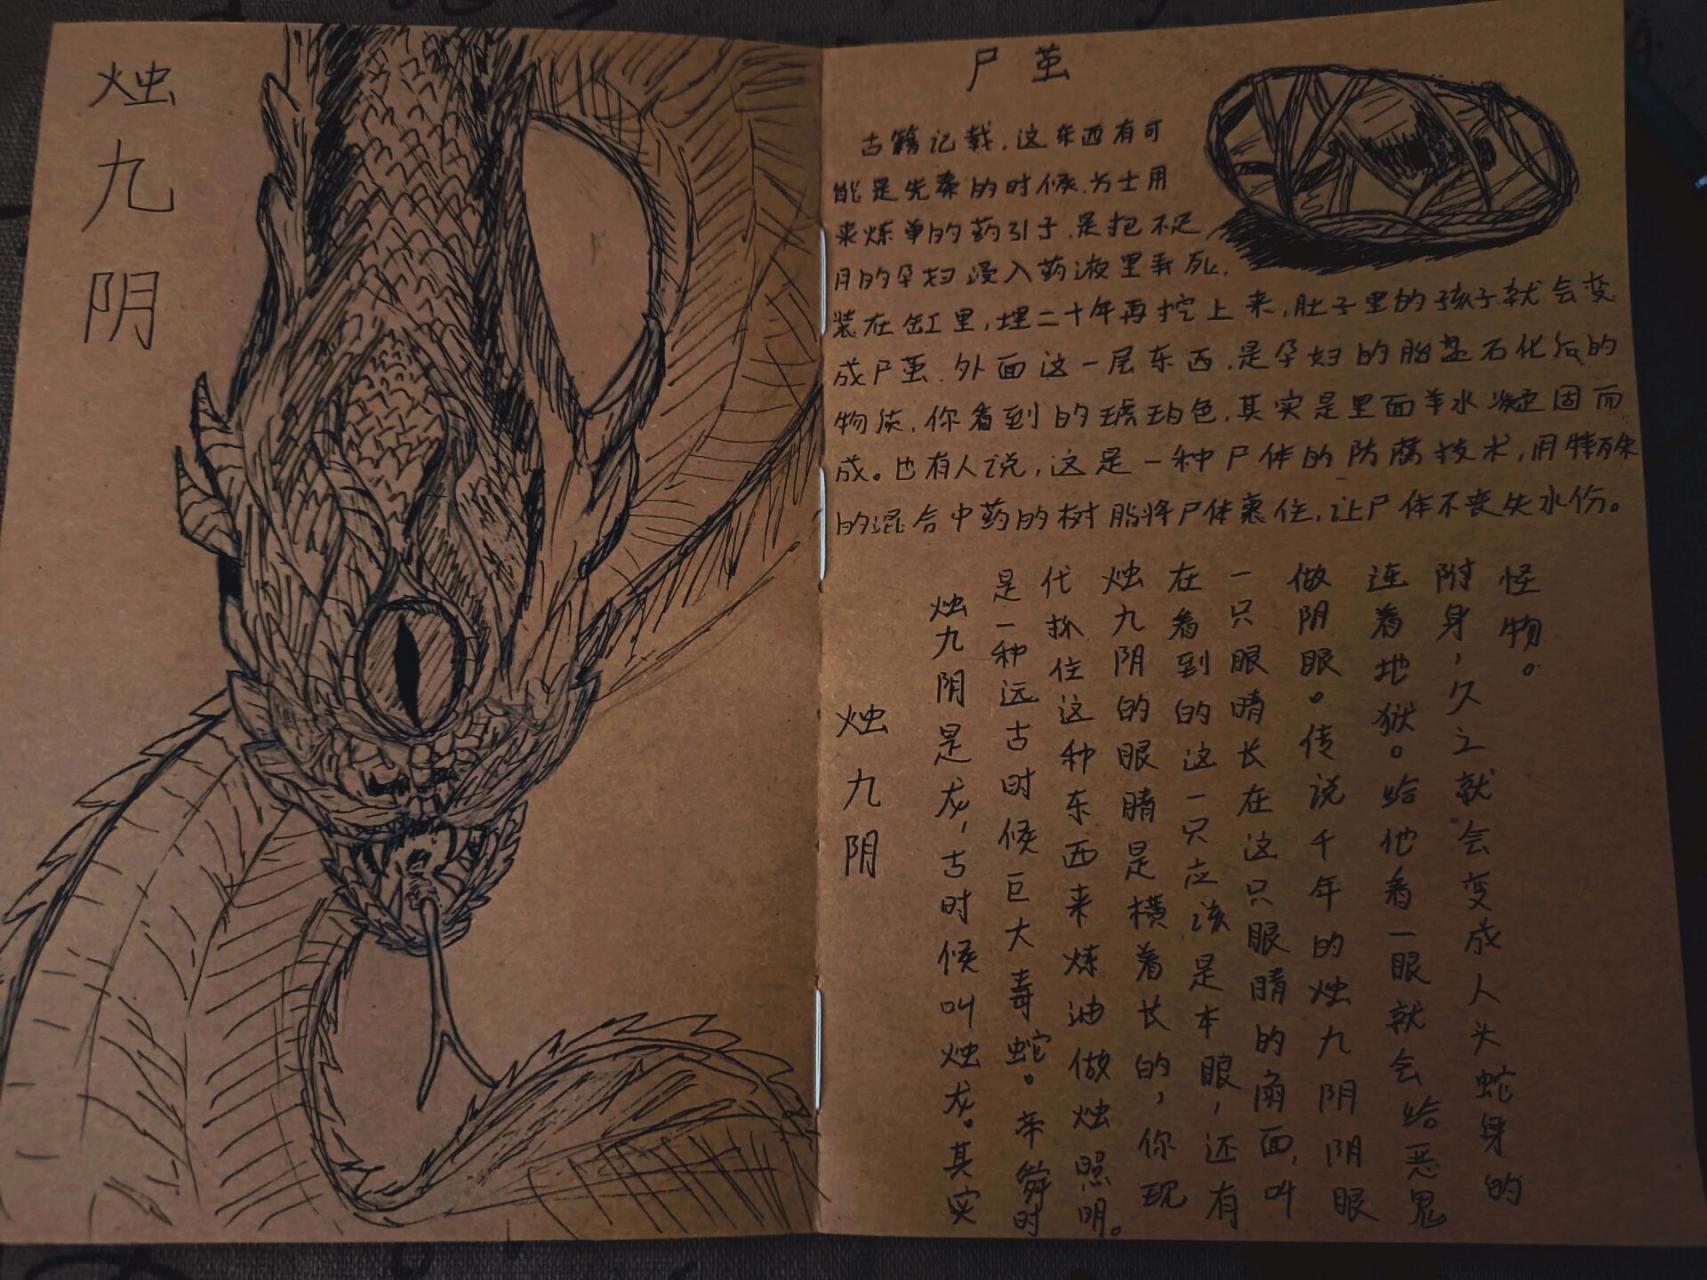 烛九阴
尸茧
古籍记载,这东西有可
能是先秦的时候.方士用
来炼单的药引子.是把不足
月的孕妇浸入药液里弄死.
装在缸里,埋二十年再挖上来,肚子里的孩子就会变
成尸茧.外面这一层东西,是孕妇的胎盘石化后的
物质,你看到的琥珀色,其实是里面羊水凝固而
成。也有人说,这是一种尸体的防腐技术,用特殊
的混合中药的树脂将尸体裹住,让尸体不丧失水份。
烛九阴
烛九阴是龙,古时候叫烛龙。其实
是一种远古时候巨大毒蛇。帝舜时
代抓住这种东西来炼油做烛照明。
烛九阴的眼睛是横着长的,你现
在看到的这一只应该是本眼,还有
一只眼睛长在这只眼睛的后面,叫
做阴眼。传说千年的烛九阴阴眼
连着地狱。给他看一眼就会给恶鬼
附身,久之就会变成人头蛇身的
怪物。